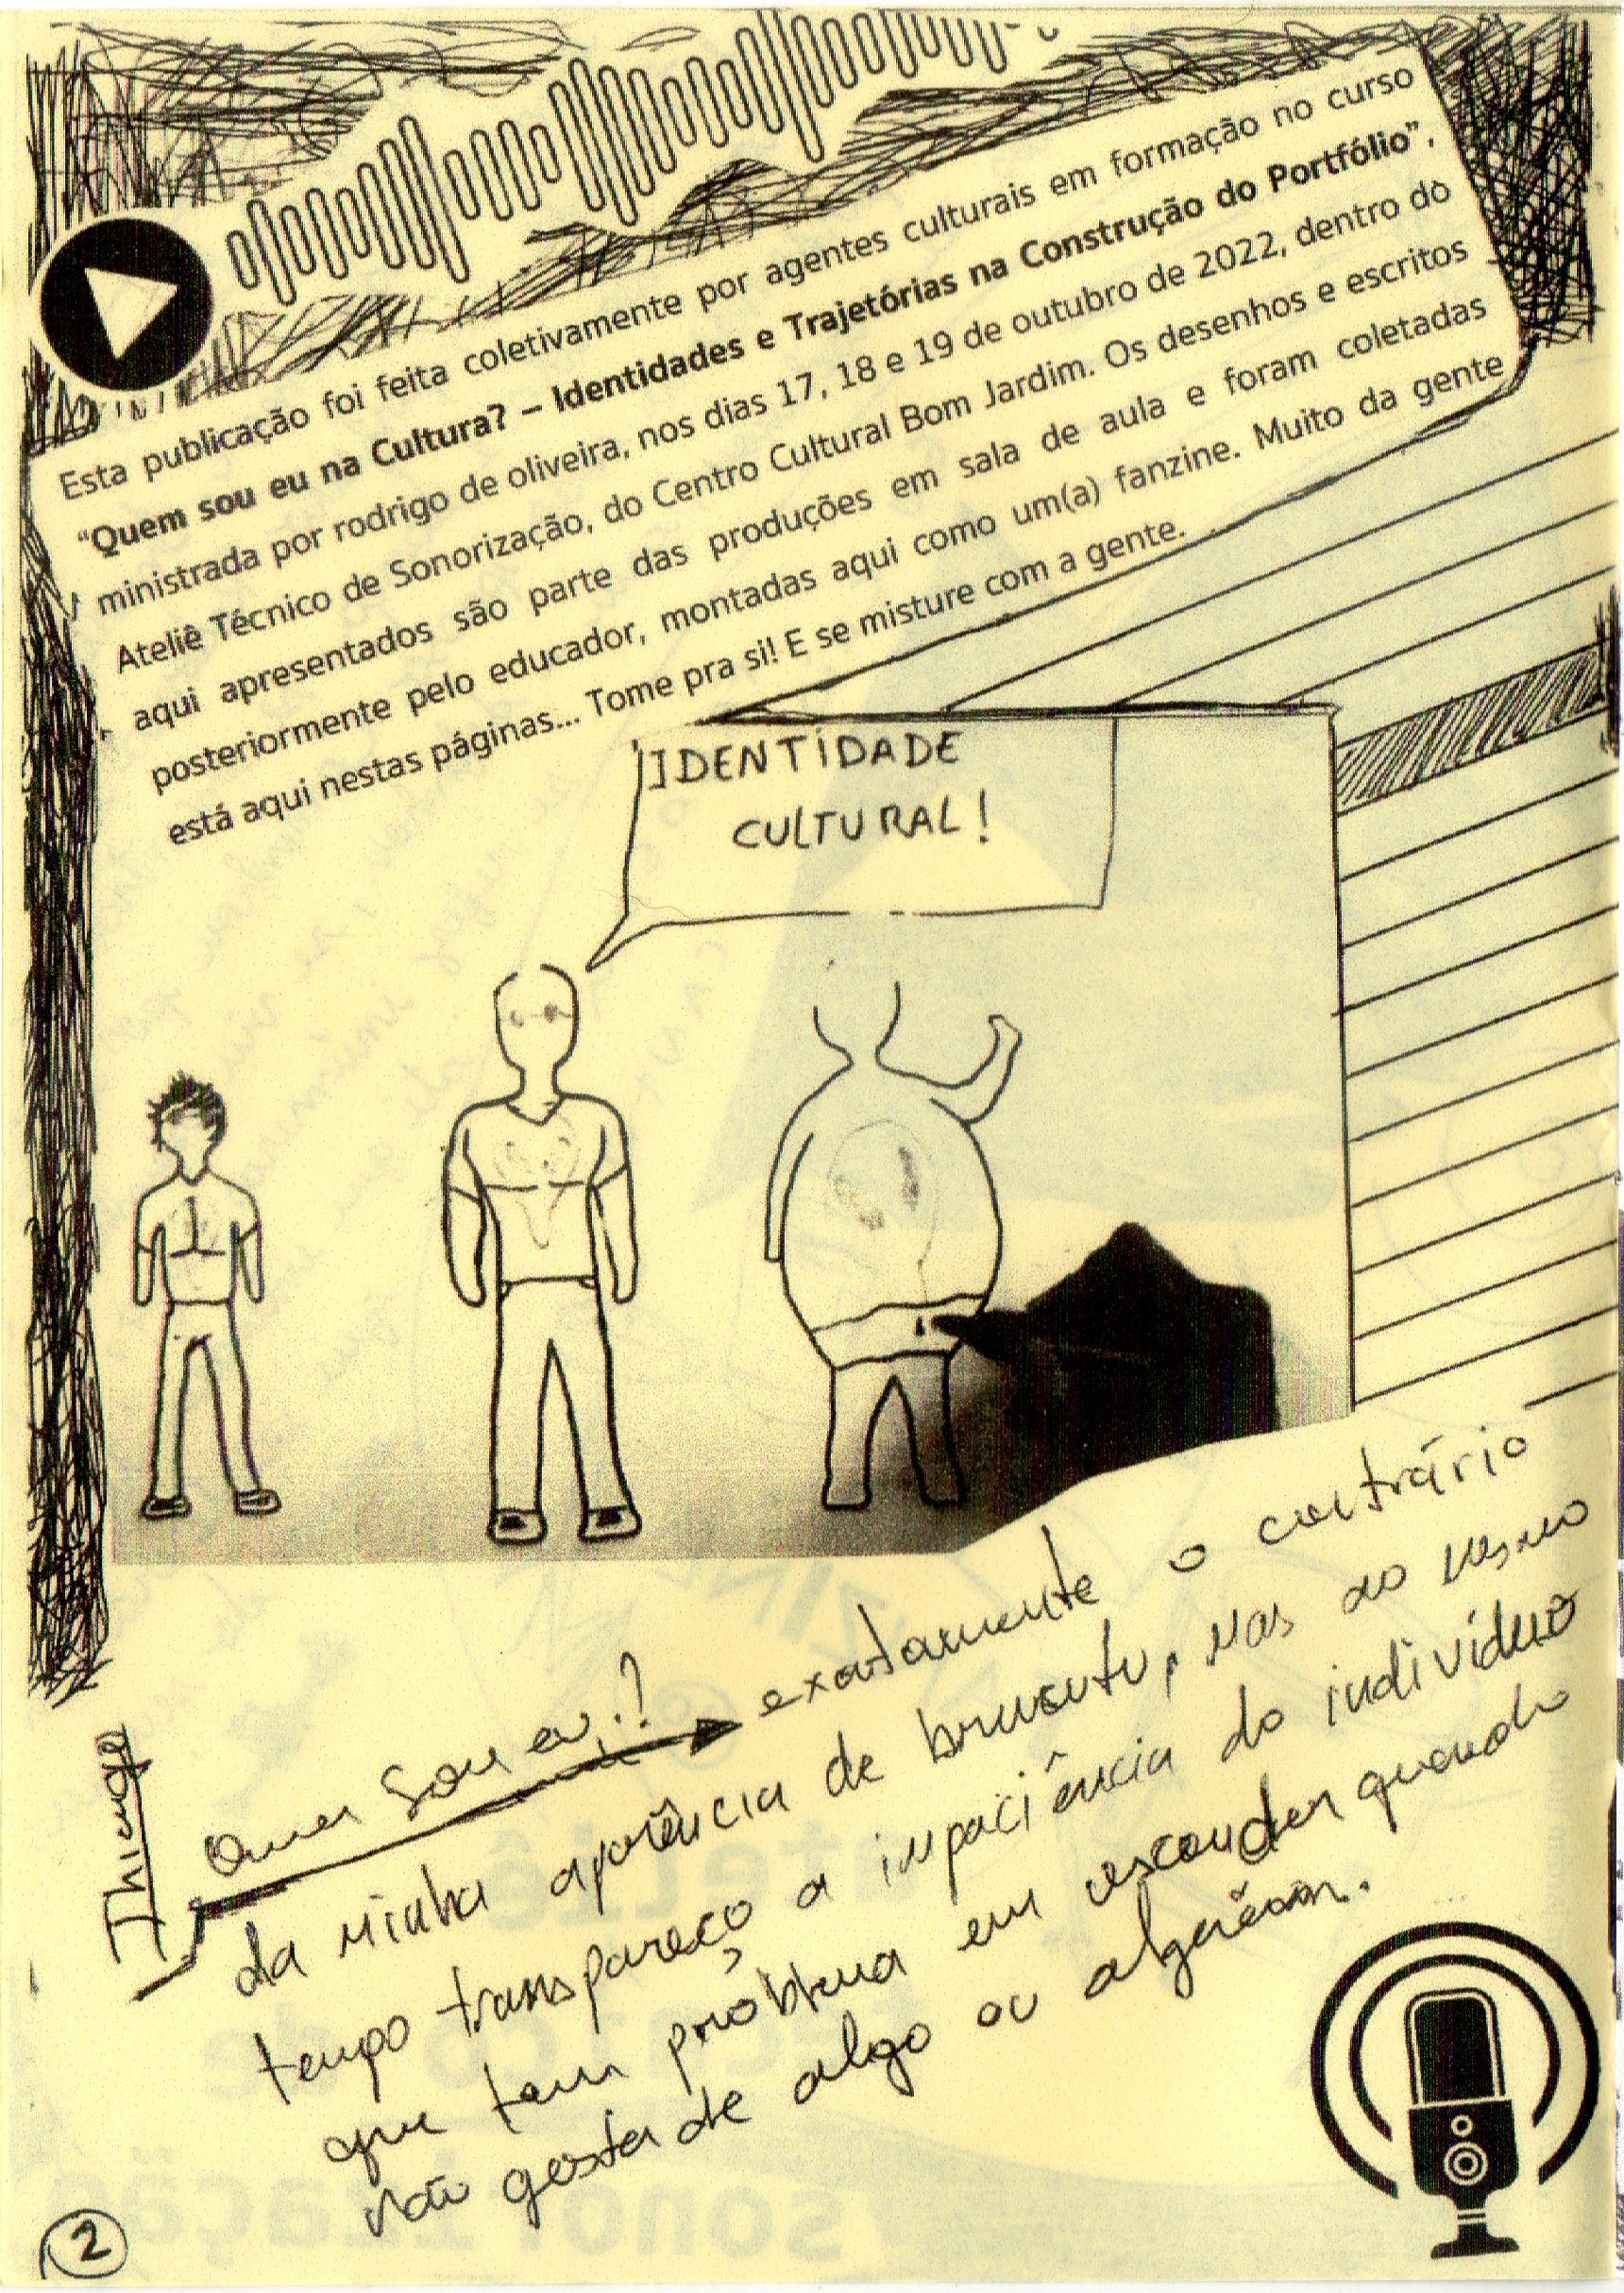 Esta publicação foi feita coletivamente por agentes culturais em formação no curso
“Quem sou eu na Cultura? – Identidades e Trajetórias na Construção do Portfólio”,
ministrada por rodrigo de oliveira, nos dias 17, 18 e 19 de outubro de 2022, dentro do
Ateliê Técnico de Sonorização, do Centro Cultural Bom Jardim. Os desenhos e escritos
aqui apresentados são parte das produções em sala de aula e foram coletadas
posteriormente pelo educador, montadas aqui como um(a) fanzine. Muito da gente
está aqui nestas páginas... Tome pra si! E se misture com a gente.
IDENTIDADE
CULTURAL!
Thiago
Quem sou eu? exatamente o contrário
da minha aparência de brucutu, mas ao mesmo
tempo transpareço a impaciência do indivíduo
que tem problema em esconder quando
não gosta de algo ou alguém.
2